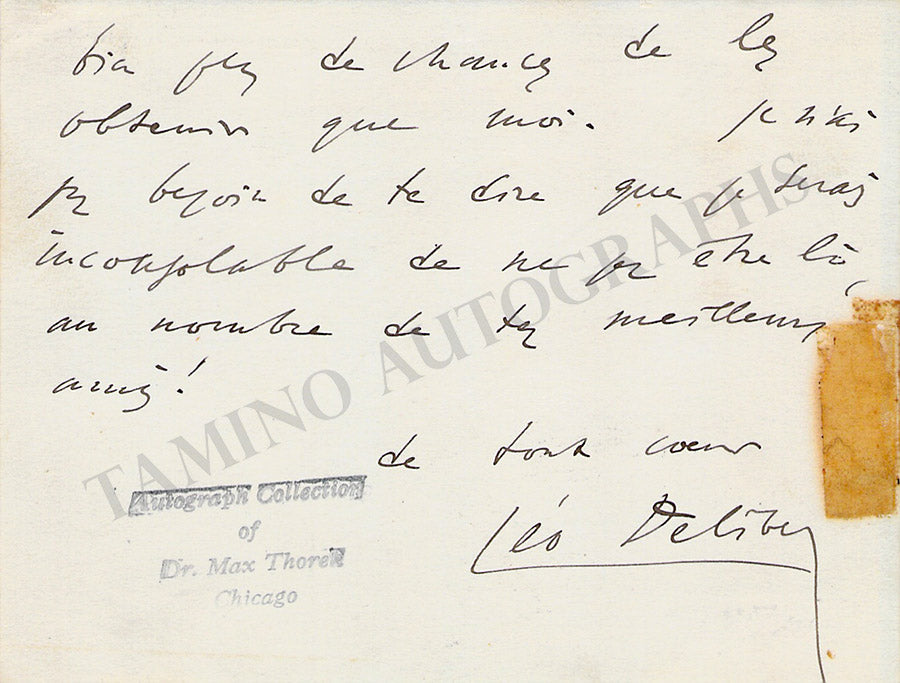 bien peu de chances de les
obtenir que moi. Je n'ai
pas besoin de te dire que je serais
inconsolable de ne pas être là,
au nombre de tes meilleurs
amis!
de tout cœur
Léo Delibes
TAMINO AUTOGRAPHS
Autograph Collection
of
Dr. Max Thorek
Chicago